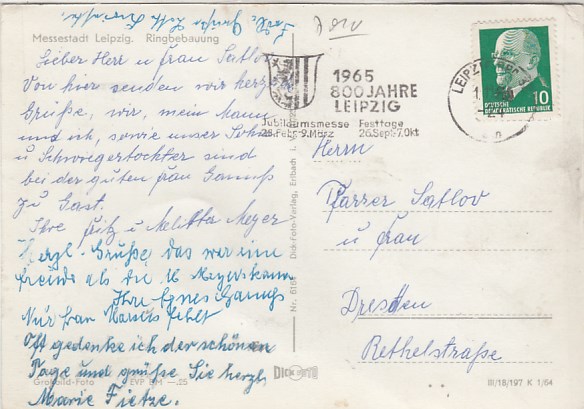 Messestadt Leipzig. Ringbebauung
Lieber Herr u Frau Satlov
Von hier senden wir herzl.
Grüße, wir, mein Mann
und ich, sowie unser Sohn
u Schwiegertochter sind
bei der guten Frau
zu Gast.
Ihre Fritz u Melitta Meyer
Herzl. Grüße, das war eine
Freude als die 4 Meyers kamen
Ihre Agnes
Nur Frau fehlt
Oft gedenke ich der schönen
Tage und grüße Sie herzl.
Marie Fietze.
Großbild-Foto EVP DM —.25
Nr. 6169 Dick-Foto-Verlag, Erlbach i. V.
DICK FOTO
1965
800 JAHRE
LEIPZIG
Jubiläumsmesse Festtage
28.Feb.-9.März 26.Sept.-7.Okt
LEIPZIG
10
DEUTSCHE
DEMOKRATISCHE REPUBLIK
Herrn
Pfarrer Satlov
u Frau
Dresden
Bethelstraße
III/18/197 K 1/64